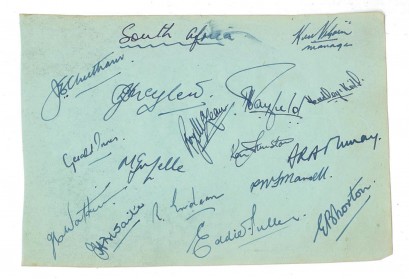 South Africa
Ken Viljoen
manager
J E Cheetham
Roy McLean
Tayfield
Headley Keith
Gerald Innes
M G Melle
Ken Funston
A R A Murray
Watkins
R. Endean
Eddie Fuller
E B Norton